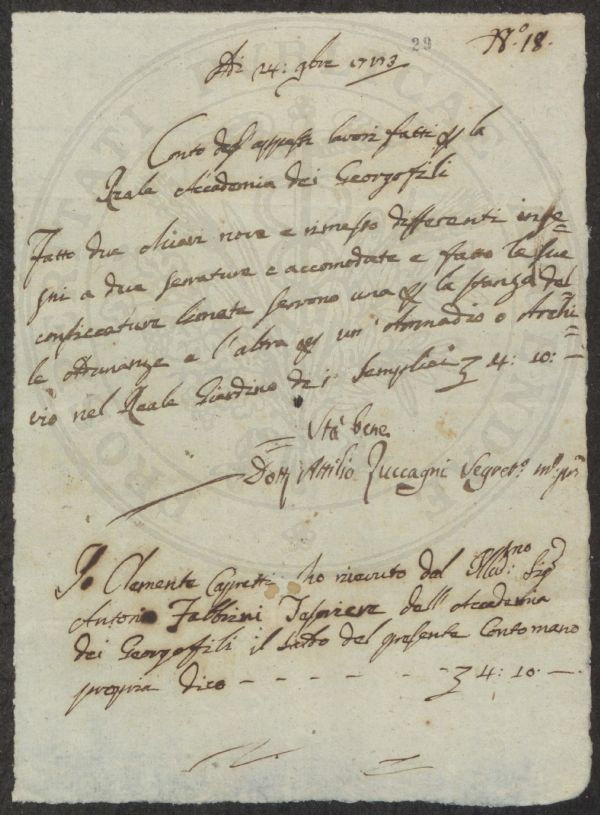 29
N.° 18.
Adi 24: 9bre 1773
Conto degl' appressi lavori fatti p la
Reale Accademia dei Georgofili
Fatto due chiavi nove e rimesso differenti inge=
gni a due serrature e accomodate e fatto le sue
conficcature servono una p la stanza del
le Adunanze e l'altra p un' Armadio o Archi=
vio nel Reale Giardino de i Semplici 4: 10: —
Sta bene
Dott Attilio Zuccagni Segret.o m.o pp
Io Clemente Capretti ho ricevuto dal Illmo: Sig
Antonio Fabbrini Tesoriere dell' Accademia
dei Georgofili il Saldo del presente Conto mano
propria dico - - - - - - - 4: 10 —
PUBLICAE